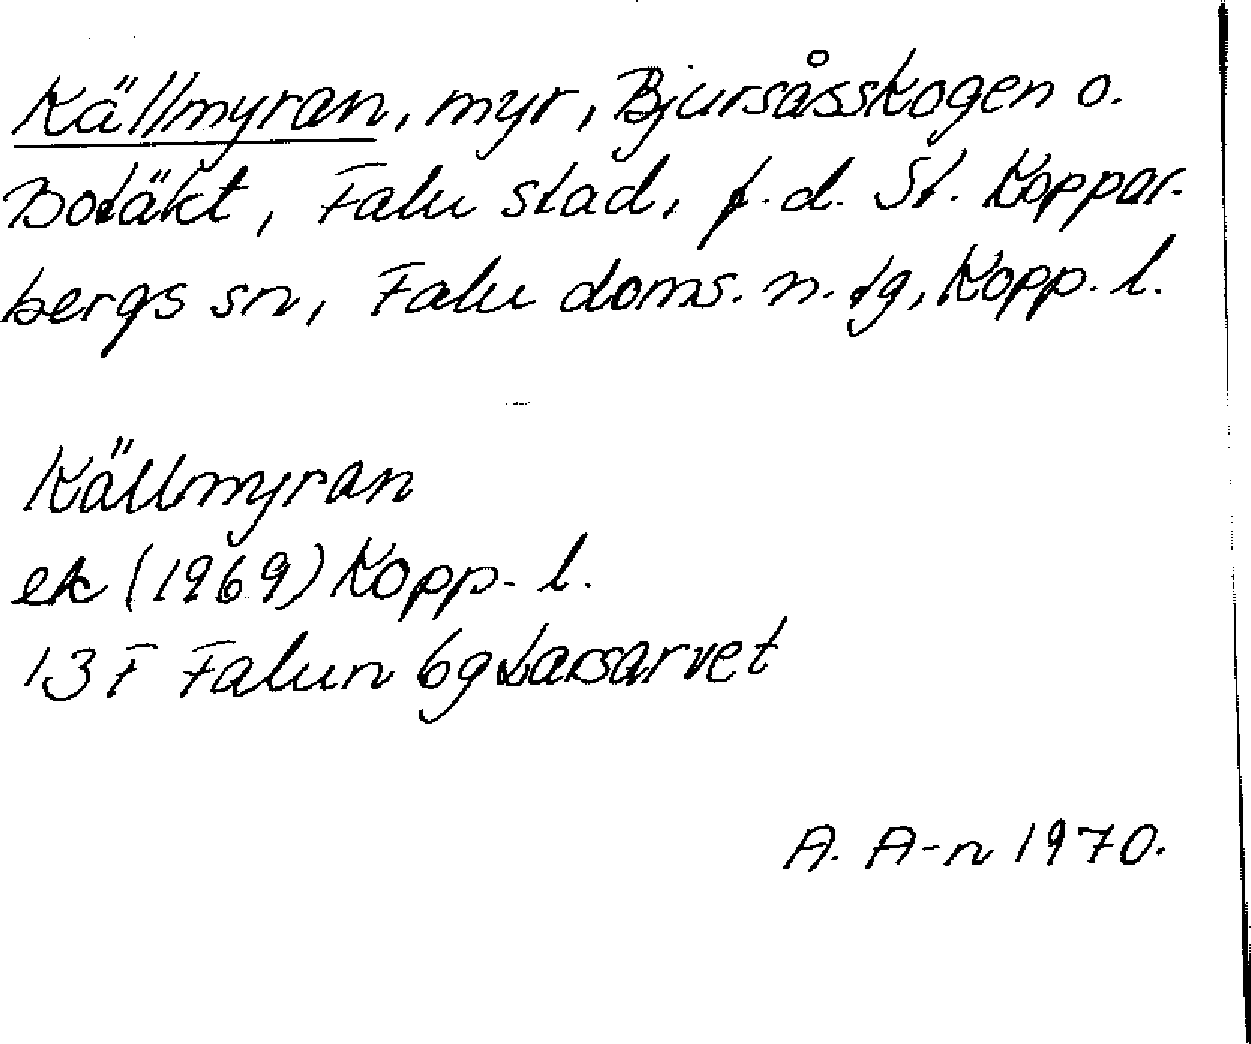 Källmyran, myr, Bjursåsskogen o.
Botäkt, Falu stad, f.d. St. Koppar-
bergs sn, Falu doms. n. tg, Kopp. l.
Källmyran
ek (1969) Kopp. l.
13F Falun 6g Larsarvet
A. A-n 1970.